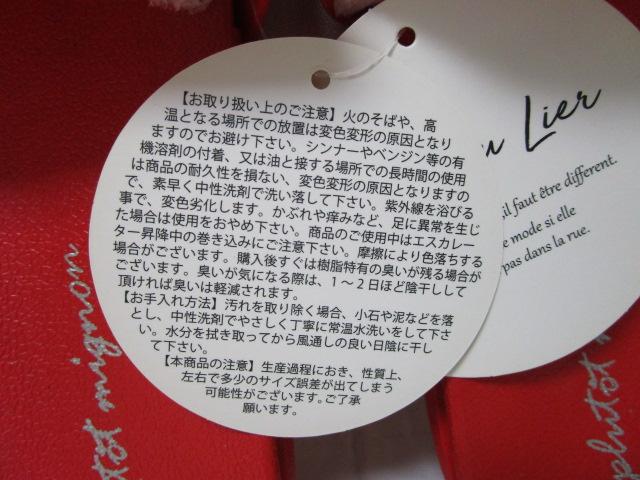 【お取り扱い上のご注意】火のそばや、高
温となる場所での放置は変色変形の原因となり
ますのでお避け下さい。シンナーやベンジン等の有
機溶剤の付着、又は油と接する場所での長時間の使用
は商品の耐久性を損ない、変色変形の原因となりますの
で、素早く中性洗剤で洗い落して下さい。紫外線を浴びる
事で、変色劣化します。かぶれや痒みなど、足に異常を生じ
た場合は使用をおやめ下さい。商品のご使用中はエスカレー
ター昇降中の巻き込みにご注意下さい。摩擦により色落ちする
場合がございます。購入後すぐは樹脂特有の臭いが残る場合が
ございます。臭いが気になる際は、1～2日ほど陰干しして
頂ければ臭いは軽減されます。
【お手入れ方法】汚れを取り除く場合、小石や泥などを落
とし、中性洗剤でやさしく丁寧に常温水洗いをして下さ
い。水分を拭き取ってから風通しの良い日陰に干し
て下さい。
【本商品の注意】生産過程におき、性質上、
左右で多少のサイズ誤差が出てしまう
可能性がございます。ご了承
願います。
Lier
il faut être different.
mode si elle
pas dans la rue.
tôt mignon
plutôt